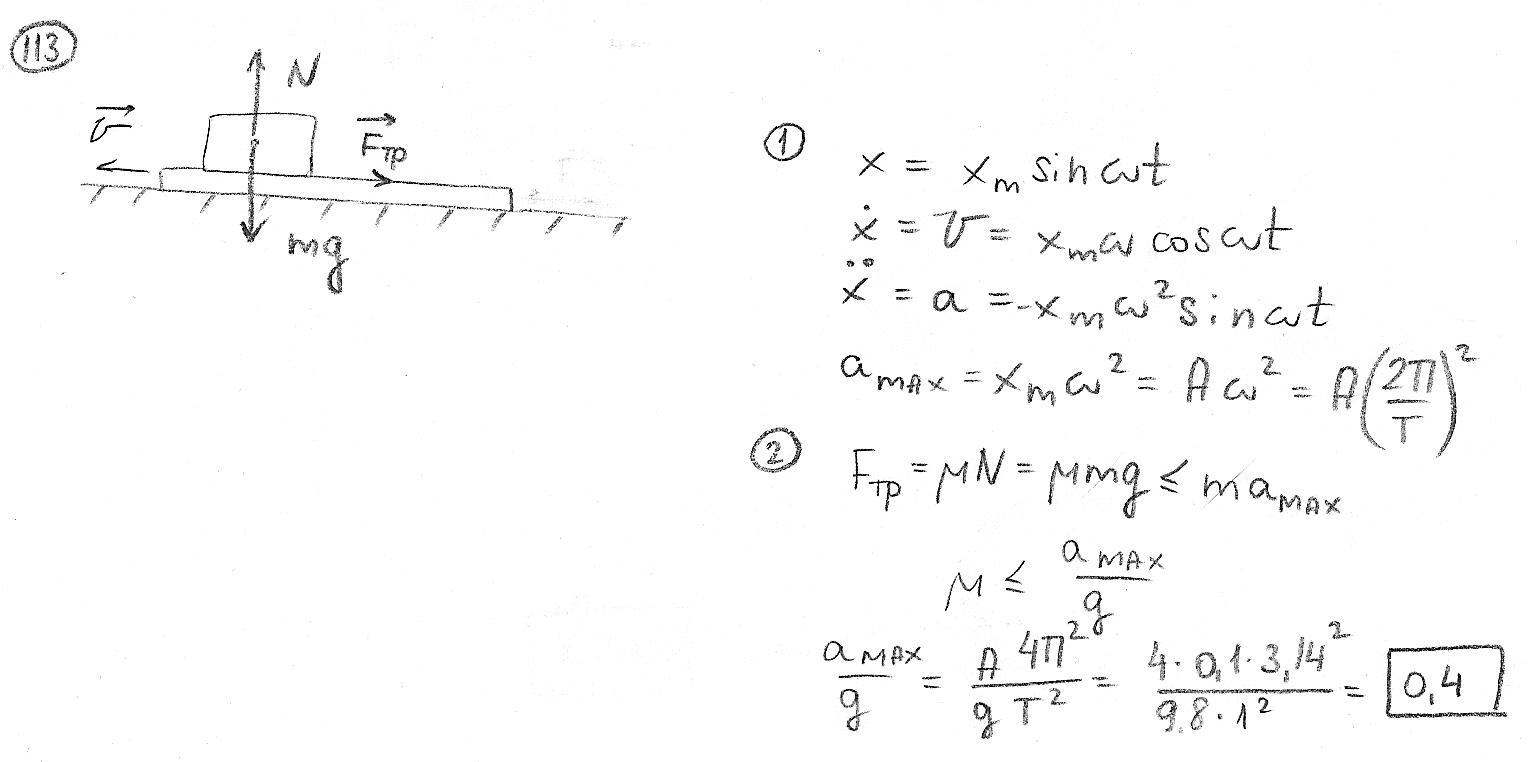 113
N
v⃗
F⃗тр
mg
① x = xₘ sin ωt
ẋ = v = xₘω cos ωt
ẍ = a = -xₘω² sin ωt
aмах = xₘω² = Aω² = A(2π/T)²
② Fтр = μN = μmg ≤ maмах
μ ≤ aмах/g
aмах/g = A 4π²/g T² = 4·0,1·3,14²/9,8·1² = 0,4